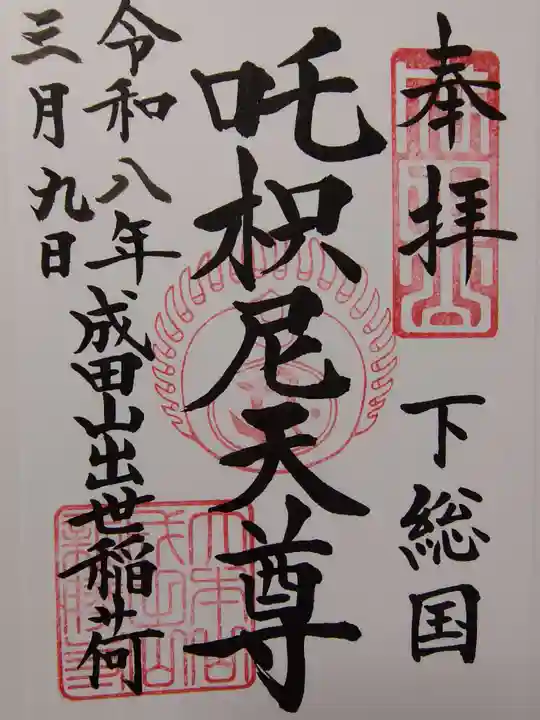 奉拝
下総国
吒枳尼天尊
成田山出世稲荷
令和八年
三月九日